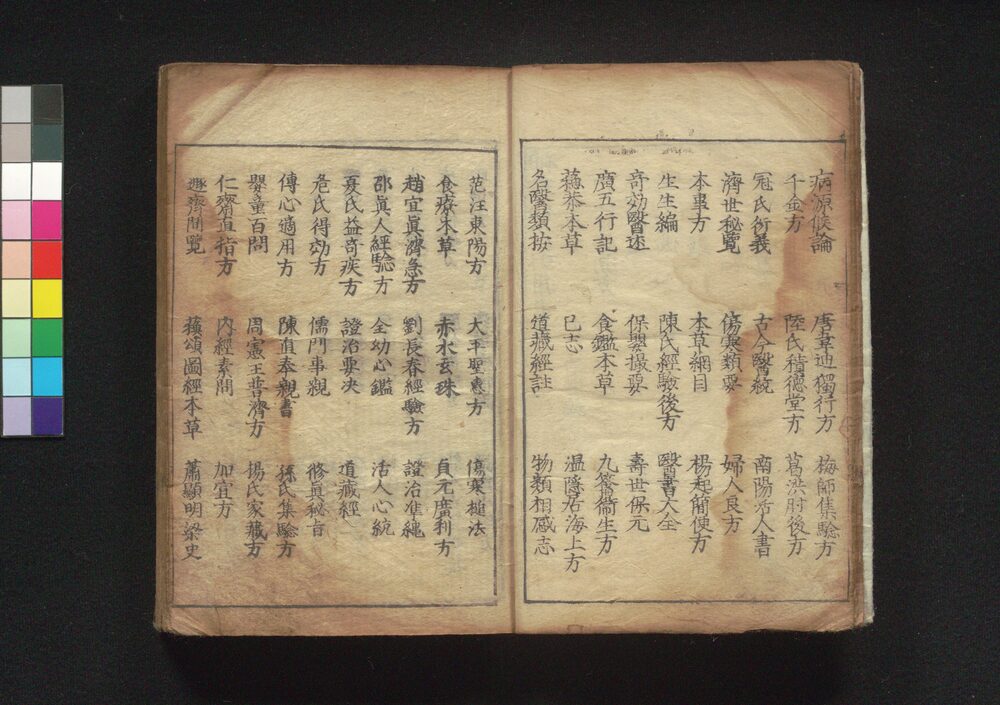 病源候論 唐韋迪獨行方 梅師集驗方
千金方 陸氏積德堂方 葛洪肘後方
冦氏衍義 古今醫統 南陽活人書
濟世秘覽 傷寒類要 婦人良方
本事方 本草綱目 楊起簡便方
生生編 陳氏經驗後方 醫書大全
奇効醫述 保嬰撮要 壽世保元
廣五行記 食鑑本草 九籥衞生方
本草 已志 温隱居海上方
名醫類按 道藏經註 物類相感志
范汪東陽方 大平聖惠方 傷寒槌法
食療本草 赤水玄珠 貞元廣利方
趙宜眞濟急方 劉長春經驗方 證治准繩
邵眞人經驗方 全幼心鑑 活人心統
夏氏益奇疾方 證治要决 道藏經
危氏得効方 儒門事親 修眞秘旨
傳心適用方 陳直奉親書 孫氏集驗方
嬰童百問 周憲王普濟方 楊氏家藏方
仁齋直指方 内經素問 加宜方
遯齋閒覽 蘓頌圖經本草 蕭顯明梁史